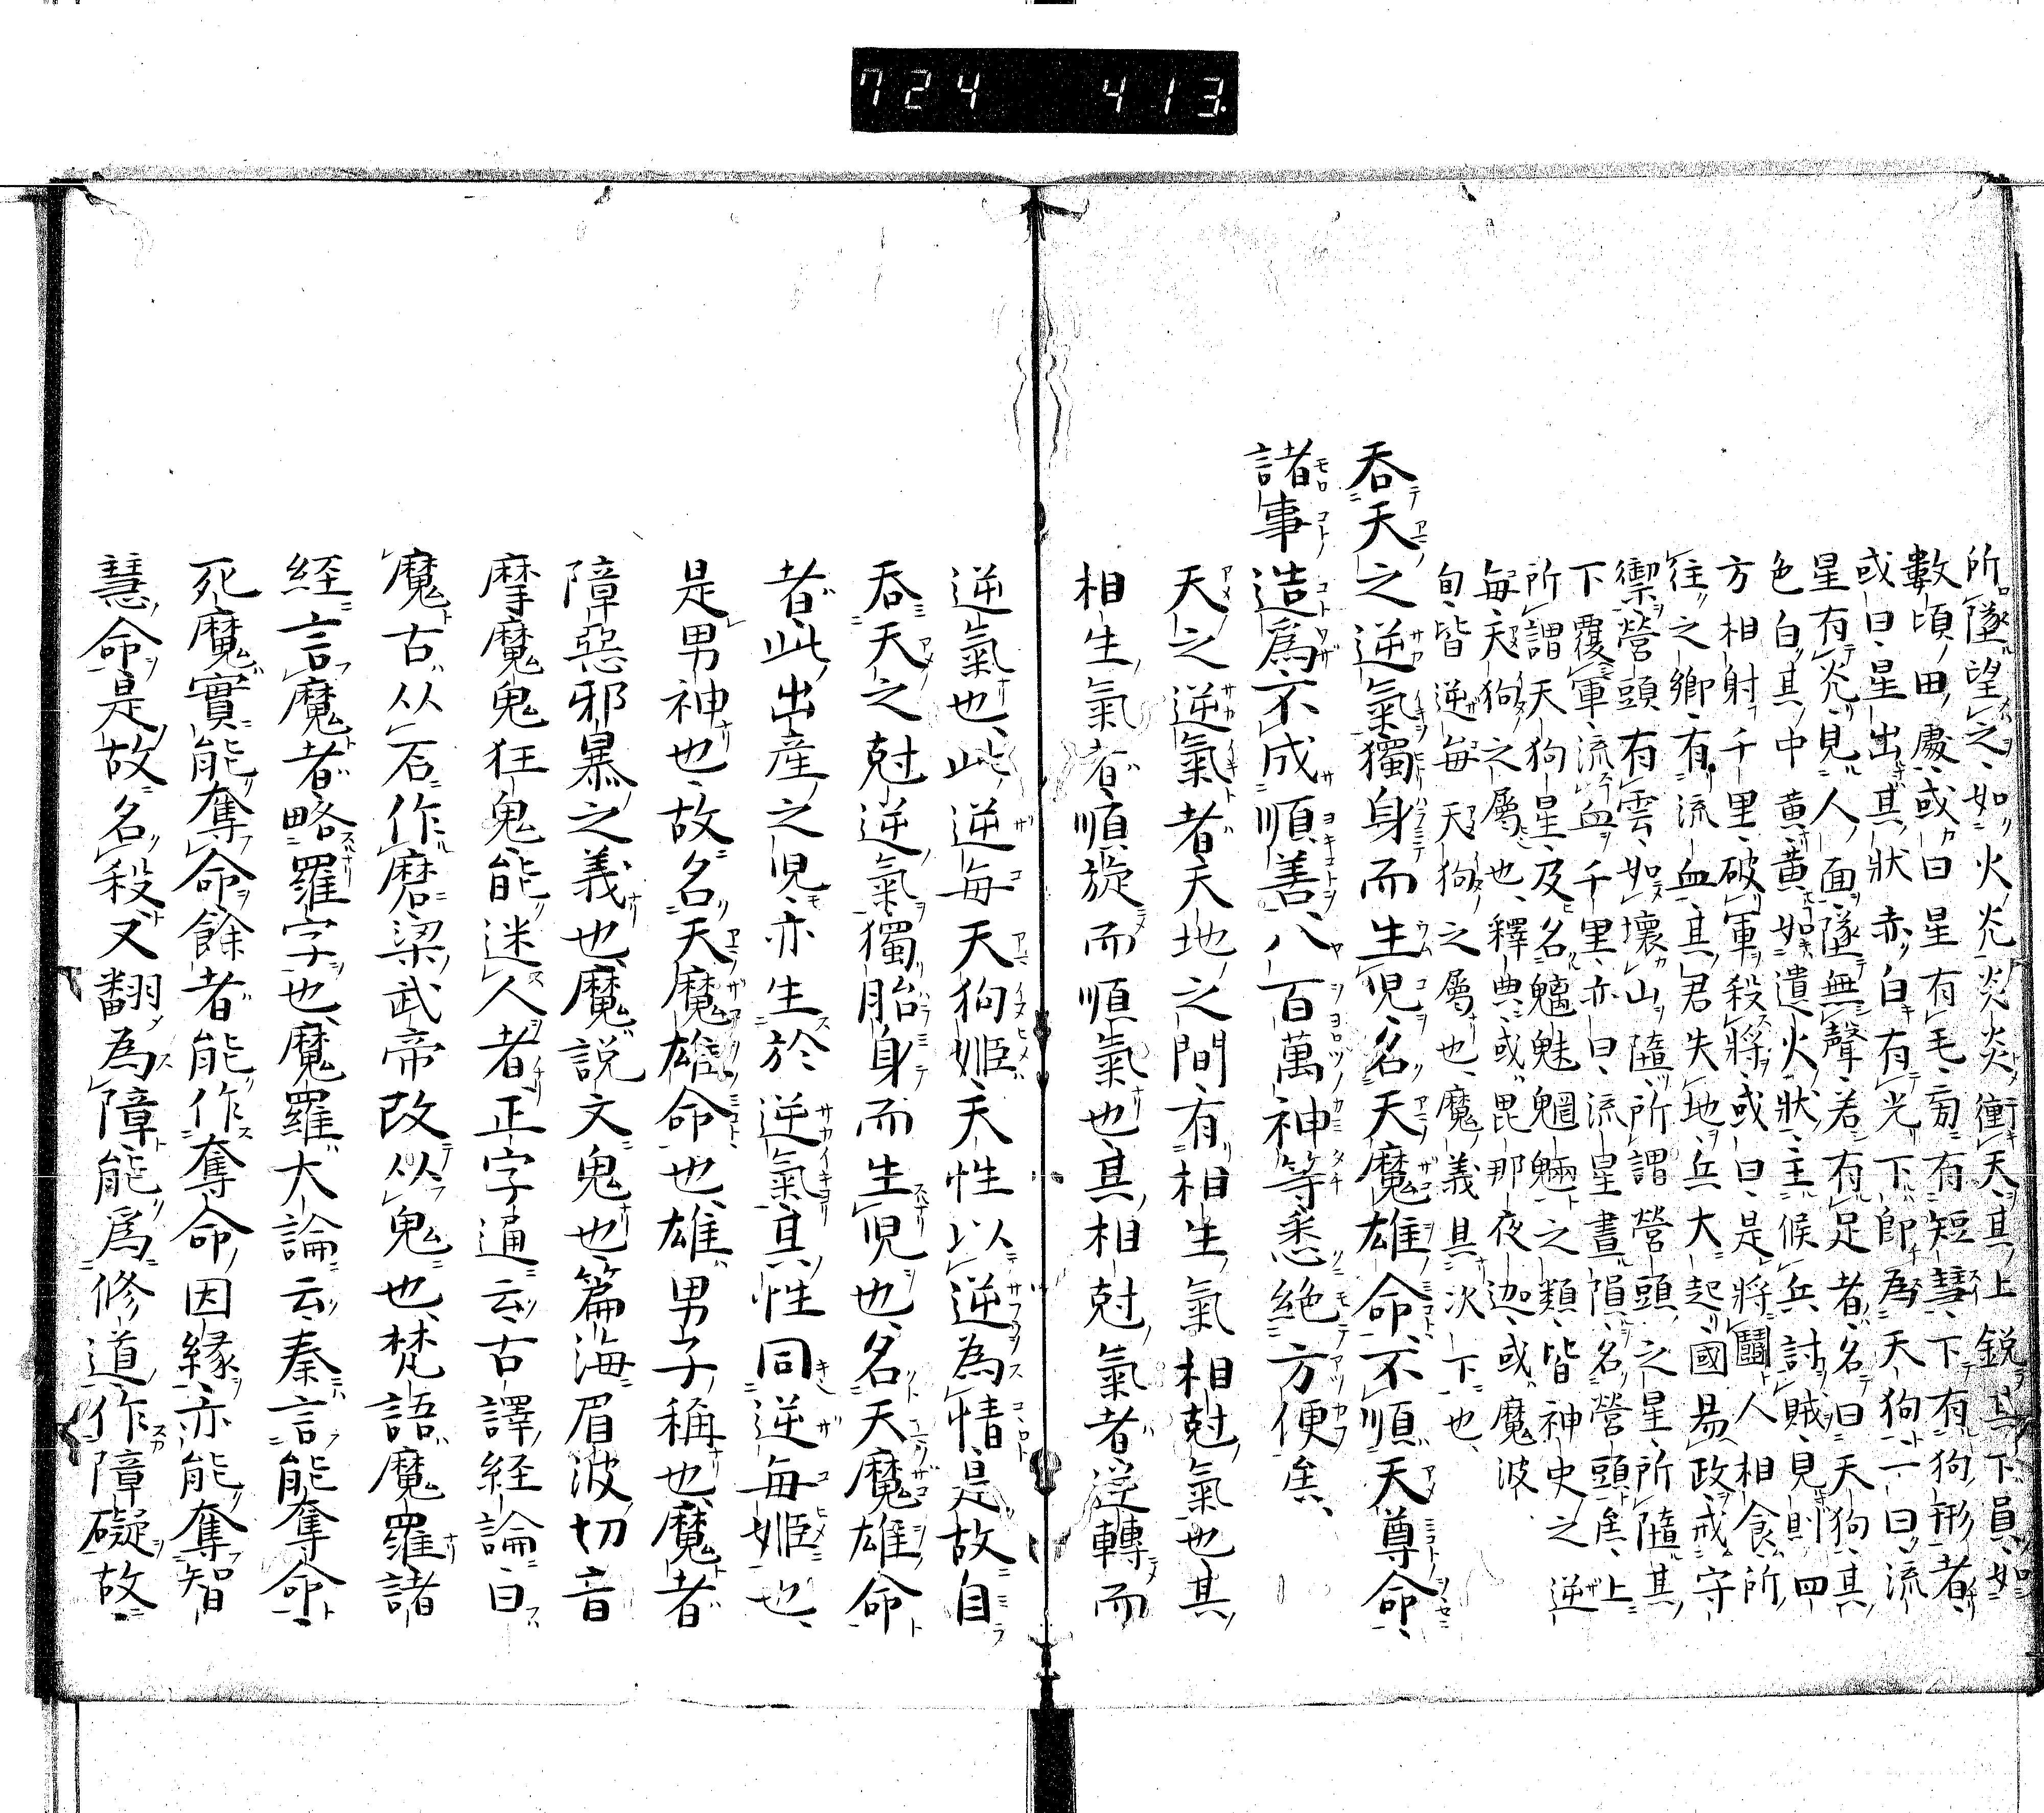 724 413.
所墜望之如火光炎炎衝天其上銳其下員如
數頃田處或曰星有毛旁有短彗下有狗形者
或曰星出其狀赤白有光下即為天狗一曰流
星有光見人面墜無聲若有足者名曰天狗其
色白其中黄黄如遺火狀主候兵討賊見則四
方相射千里破軍殺將或曰是將鬪人相食所
往之鄉有流血其君失地兵大起國易政戒守
禦營頭有雲如壞山隨所謂營頭之星所隨其
下覆軍流血千里亦曰流星晝隕名營頭矣上
所謂天狗星及名魑魅魍魎之類皆神史之逆
毎天狗之属也釋典或毘那夜迦或魔波
旬皆逆毎天狗之屬也魔義具次下也
呑天之逆氣獨身而生児名天魔雄命不順天尊命
諸事造爲不成順善八百萬神等悉絶方便矣
天之逆氣者天地之間有相生氣相尅氣也其
相生氣者順旋而順氣也其相尅氣者逆轉而
逆氣也此逆毎天狗姫天性以逆為情是故自
呑天之尅逆氣獨胎身而生児也名天魔雄命
者此出産之児亦生於逆氣其性同逆毎姫也
是男神也故名天魔雄命也雄男子稱也魔者
障惡邪暴之義也魔説文鬼也篇海眉波切音
摩魔鬼狂鬼能迷人者正字通云古譯経論曰
魔古从石作磨梁武帝改从鬼也梵語魔羅諸
経言魔者略羅字也魔羅大論云秦言能奪命
死魔實能奪命餘者能作奪命因緣亦能奪智
慧命是故名殺又翻為障能爲修道作障礙故